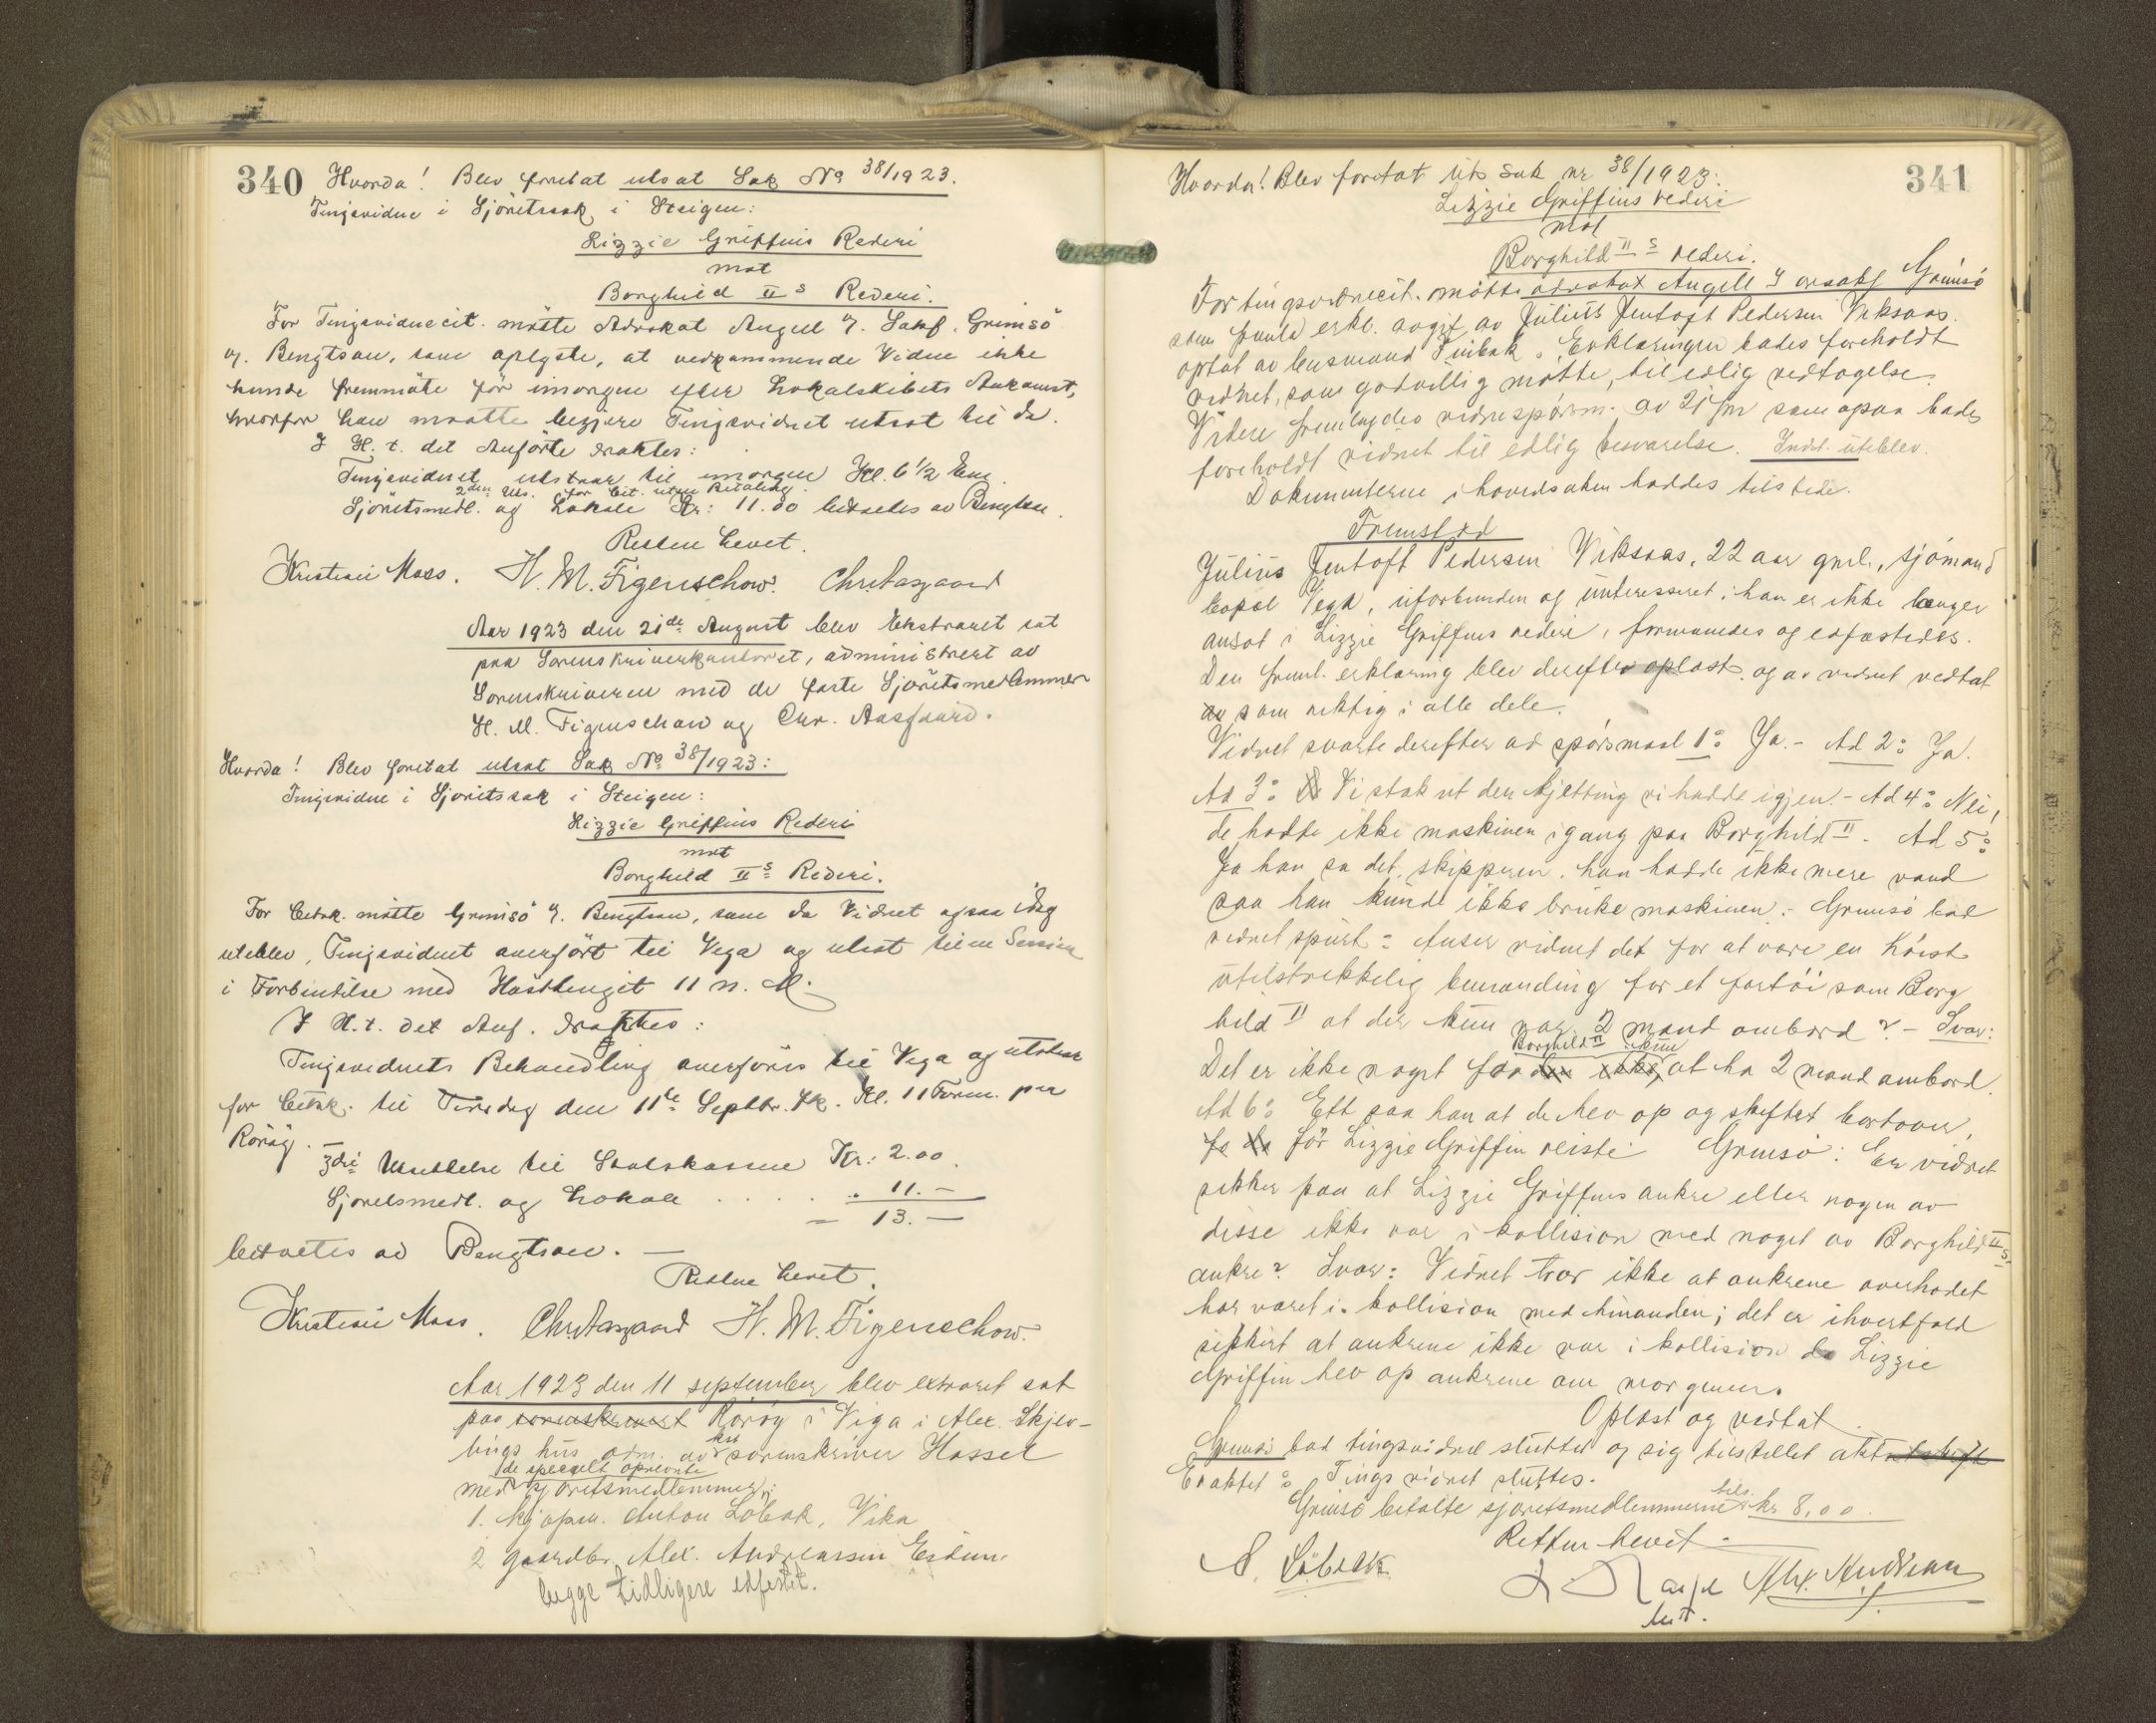 340
Hvorda! Blev foretat utsat Sak No 38/1923.
Tingsvidne i Sjöretssak i Steigen:
Lizzie Griffins Rederi
mot
Borghild II s Rederi.
For Tingsvidnecit. mötte Advokat Angell v. Sakf. Grimsö
v. Bengtson, som oplyste, at vedkommende Vidne ikke
kunde fremmöte för imorgen efter Lokalskibets Ankomst,
hvorfor han maatte begjære Tingsvidnet utsat til da.
I H. t. det Anförte draktes:
Tingsvidnet utstaar til imorgen Kl. 6 1/2 Em.
2den Uts. for Cit. uten Betaling.
Sjöretsmedl. og Lokale Kr: 11.00 betaltes av Bengtson.
Retten hevet.
Kristian Moss. H. M. Figenschow. Chr. Aasgaard
Aar 1923 den 21de August blev Ekstraret sat
paa Sorenskriverkontoret, administrert av
Sorenskriveren med de faste Sjöretsmedlemmer
H. M. Figenschow og Chr. Aasgaard.
Hvorda! Blev foretat utsat Sak No 38/1923:
Tingsvidne i Sjöretssak i Steigen:
Lizzie Griffins Rederi
mot
Borghild II s Rederi.
For Citsk. mötte Grimsö v. Bengtson, som da Vidnet ogsaa idag
uteblev, Tingsvidnet overfört til Vega og utsat til en Session
i Forbindelse med Hösttinget 11 n. M.
I H. t. det Anf. draktes:
Tingsvidnets Behandling overföres til Vega og utstaar
for Citsk. til Tirsdag den 11te Septbr. fk. Kl. 11 Form. paa
Röröy. —
3die Utsettelse til Statskassen Kr: 2.00
Sjöretsmedl. og Lokale . . . . . " 11.—
— 13.—
betaltes av Bengtson. —
Retten hevet.
Kristian Moss. Chr. Aasgaard H. M. Figenschow.
Aar 1923 den 11 september blev extraret sat
paa sorenskriverk Rörøy i Vega i Alex. Skjev-
bugs hus adm. av kst sorenskriver Hassel
de specielt opnevnte
med sjöretsmedlemmer:
1. kjøpm. Anton Löbak, Vika
2 gaardbr. Alex. Andreassen Eidem.
begge tidligere edfestet.
341
Hvorda! Blev foretat uts sak nr 38/1923:
Lizzie Griffins rederi
mot
Borghild II s rederi.
For tingsvidnecit. mötte advokat Angell v ovsakf Grimsö
som fremla erkl. avgit av Julius Jentoft Pedersen Viksaas.
optat av lensmand Finbak. Erklæringen bades foreholdt
vidnet, som godvillig møtte, til edlig vedtagelse.
Videre fremlagdes vidnespörsm. av 21/ som ogsaa bades
foreholdt vidnet til edlig besvarelse. Indst. uteblev.
Dokumenterne i hovedsaken haddes tilstede.
Fremstod
Julius Jentoft Pedersen Viksaas, 22 aar gml., sjömand
bopæl Vega, uforbunden og uinteressert; han er ikke længer
ansat i Lizzie Griffins rederi, formanedes og edfæstedes.
Den freml. erklæring blev derefter oplæst og av vidnet vedtat
av som riktig i alle dele.
Vidnet svarte derefter ad spörsmaal 1: Ja.- Ad 2: Ja.
Ad 3: Vi stak ut den kjetting vi hadde igjen.- Ad 4: Nei,
de hadde ikke maskinen igang paa Borghild II. Ad 5:
Ja han sa det, skipperen. han hadde ikke mere vand
saa han kunde ikke bruke maskinen. - Grimsö bad
vidnet spurt: Anser vidnet det for at være en höist
utilstrekkelig bemanding for et fartöi som Borg
hild II at der kun var 2 mand ombord? - Svar:
Borghild II kun
Det er ikke noget for den ikke at ha 2 mand ombord.
Ad 6: Ett saa han at de hev op og skiftet bortover,
fo da för Lizzie Griffin reiste. Grimsö: Er vidnet
sikker paa at Lizzie Griffins ankre eller nogen av
disse ikke var i kollision med noget av Borghild II s
ankre? Svar: Vidnet tror ikke at ankrene overhodet
har været i kollision med hinanden; det er ihvertfald
sikkert at ankrene ikke var i kollision da Lizzie
Griffin hev op ankrene om morgenen.
Oplæst og vedtat.
Grimsö bad tingsvidnet sluttet og sig tilstillet aktutskrift
Eraktet: Tingsvidnet sluttes.
Grimsö betalte sjöretsmedlemmerne tils. kr 8,00.
Retten hevet -
A. Löbak. Alex. Andreassen
kst.